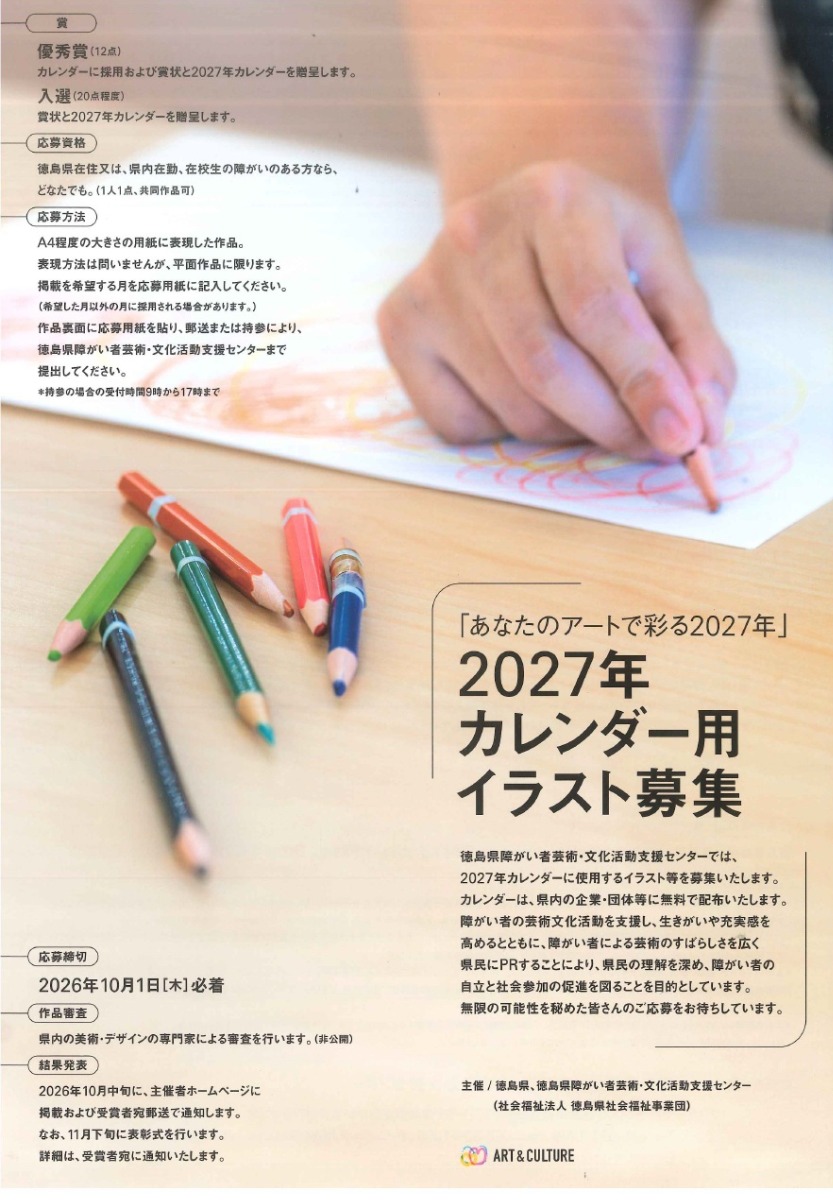 賞
優秀賞(12点)
カレンダーに採用および賞状と2027年カレンダーを贈呈します。
入選(20点程度)
賞状と2027年カレンダーを贈呈します。
応募資格
徳島県在住又は、県内在勤、在校生の障がいのある方なら、
どなたでも。(1人1点、共同作品可)
応募方法
A4程度の大きさの用紙に表現した作品。
表現方法は問いませんが、平面作品に限ります。
掲載を希望する月を応募用紙に記入してください。
(希望した月以外の月に採用される場合があります。)
作品裏面に応募用紙を貼り、郵送または持参により、
徳島県障がい者芸術・文化活動支援センターまで
提出してください。
*持参の場合の受付時間9時から17時まで
「あなたのアートで彩る2027年」
2027年
カレンダー用
イラスト募集
徳島県障がい者芸術・文化活動支援センターでは、
2027年カレンダーに使用するイラスト等を募集いたします。
カレンダーは、県内の企業・団体等に無料で配布いたします。
障がい者の芸術文化活動を支援し、生きがいや充実感を
高めるとともに、障がい者による芸術のすばらしさを広く
県民にPRすることにより、県民の理解を深め、障がい者の
自立と社会参加の促進を図ることを目的としています。
無限の可能性を秘めた皆さんのご応募をお待ちしています。
応募締切
2026年10月1日[木]必着
作品審査
県内の美術・デザインの専門家による審査を行います。(非公開)
結果発表
2026年10月中旬に、主催者ホームページに
掲載および受賞者宛郵送で通知します。
なお、11月下旬に表彰式を行います。
詳細は、受賞者宛に通知いたします。
主催 / 徳島県、徳島県障がい者芸術・文化活動支援センター
(社会福祉法人 徳島県社会福祉事業団)
ART & CULTURE